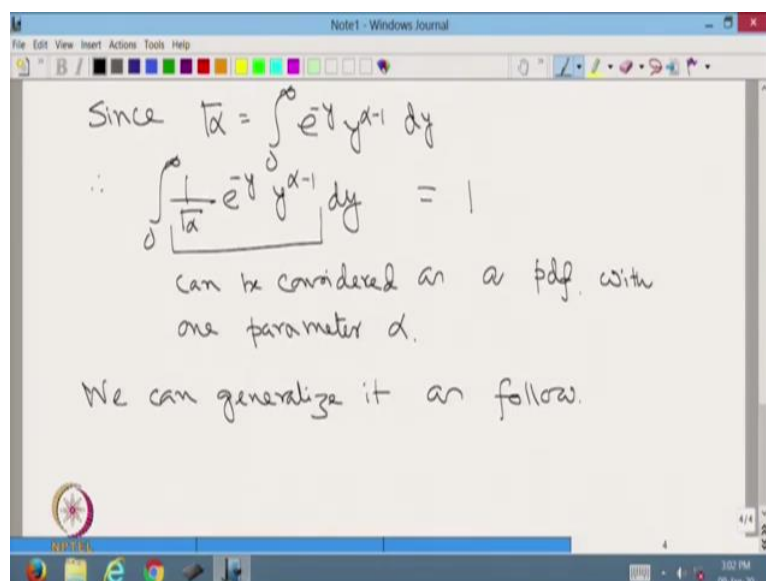 Note1 - Windows Journal
File Edit View Insert Actions Tools Help
B I
Since Γα = ∫₀^∞ e^{-y} y^{α-1} dy
∴ ∫₀^∞ 1/Γα e^{-y} y^{α-1} dy = 1
can be considered as a pdf. with
one parameter α.
We can generalize it as follow.
NPTEL
4/4
4
3:02 PM